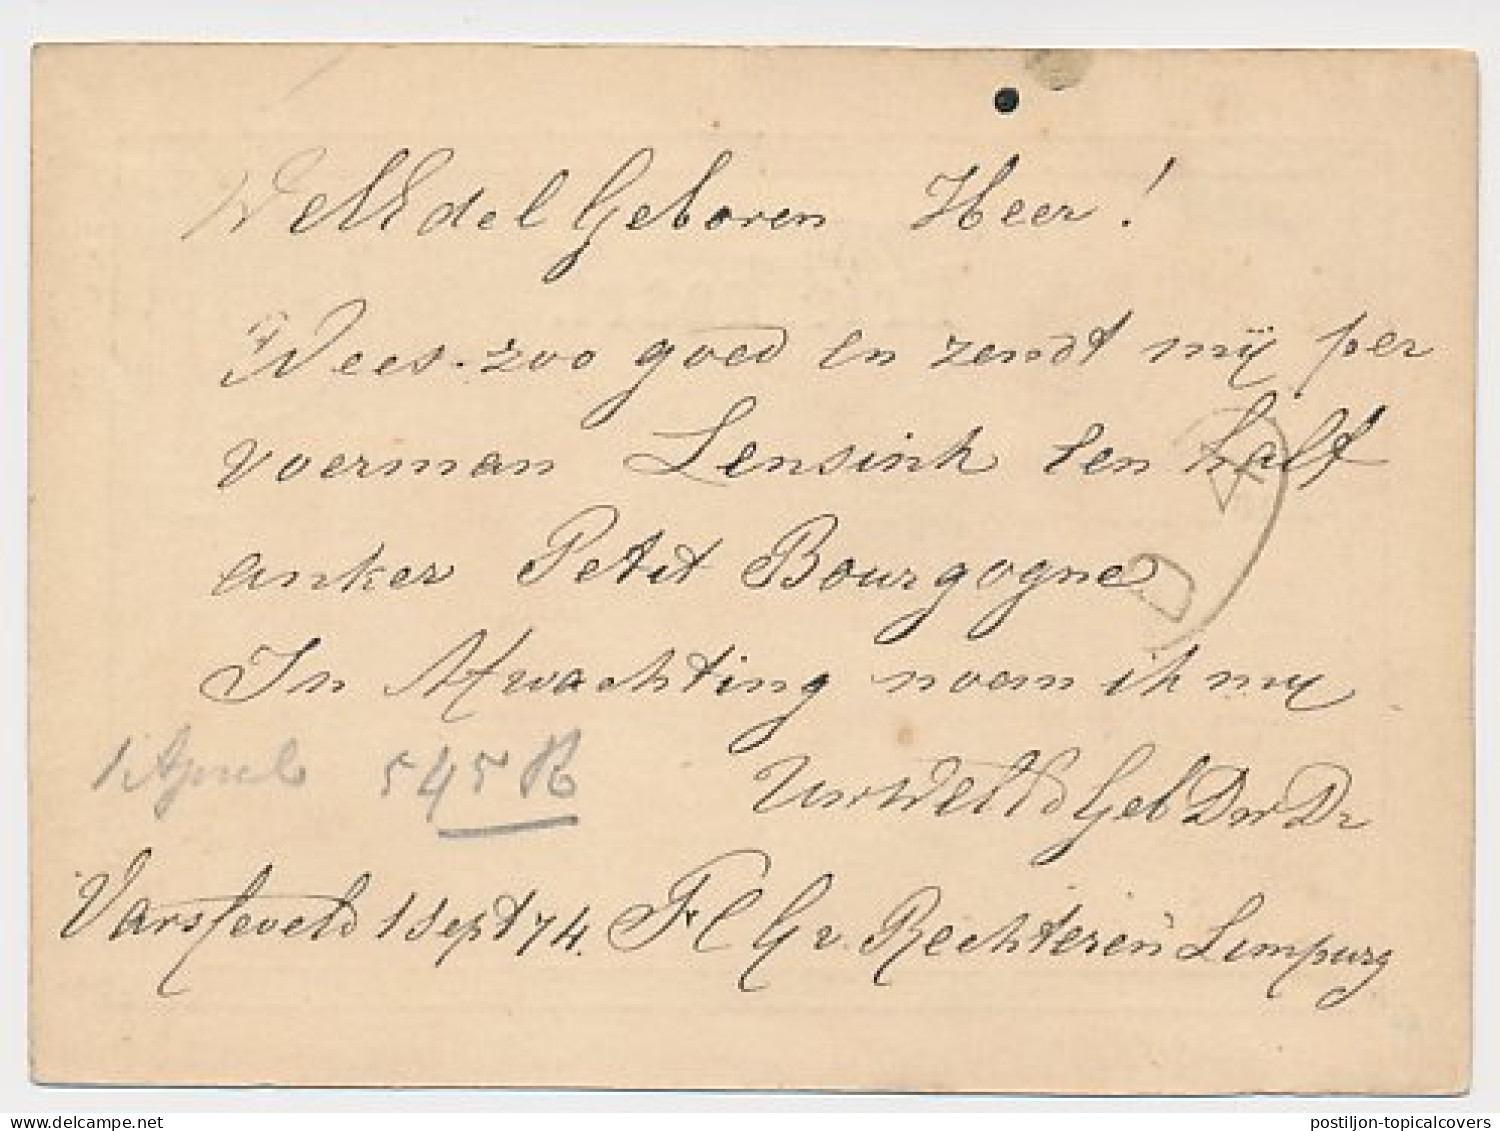 WelEdel Geboren Heer!
Wees zoo goed en zendt mij per
voerman Lensink een half
anker Petit Bourgogne
In Afwachting noem ik mij
UwWelEdGeb DwDr
1 April 545 R
Varsseveld 1 Sept 74. F C G v. Rechteren Limpurg
postiljon-topicalcovers